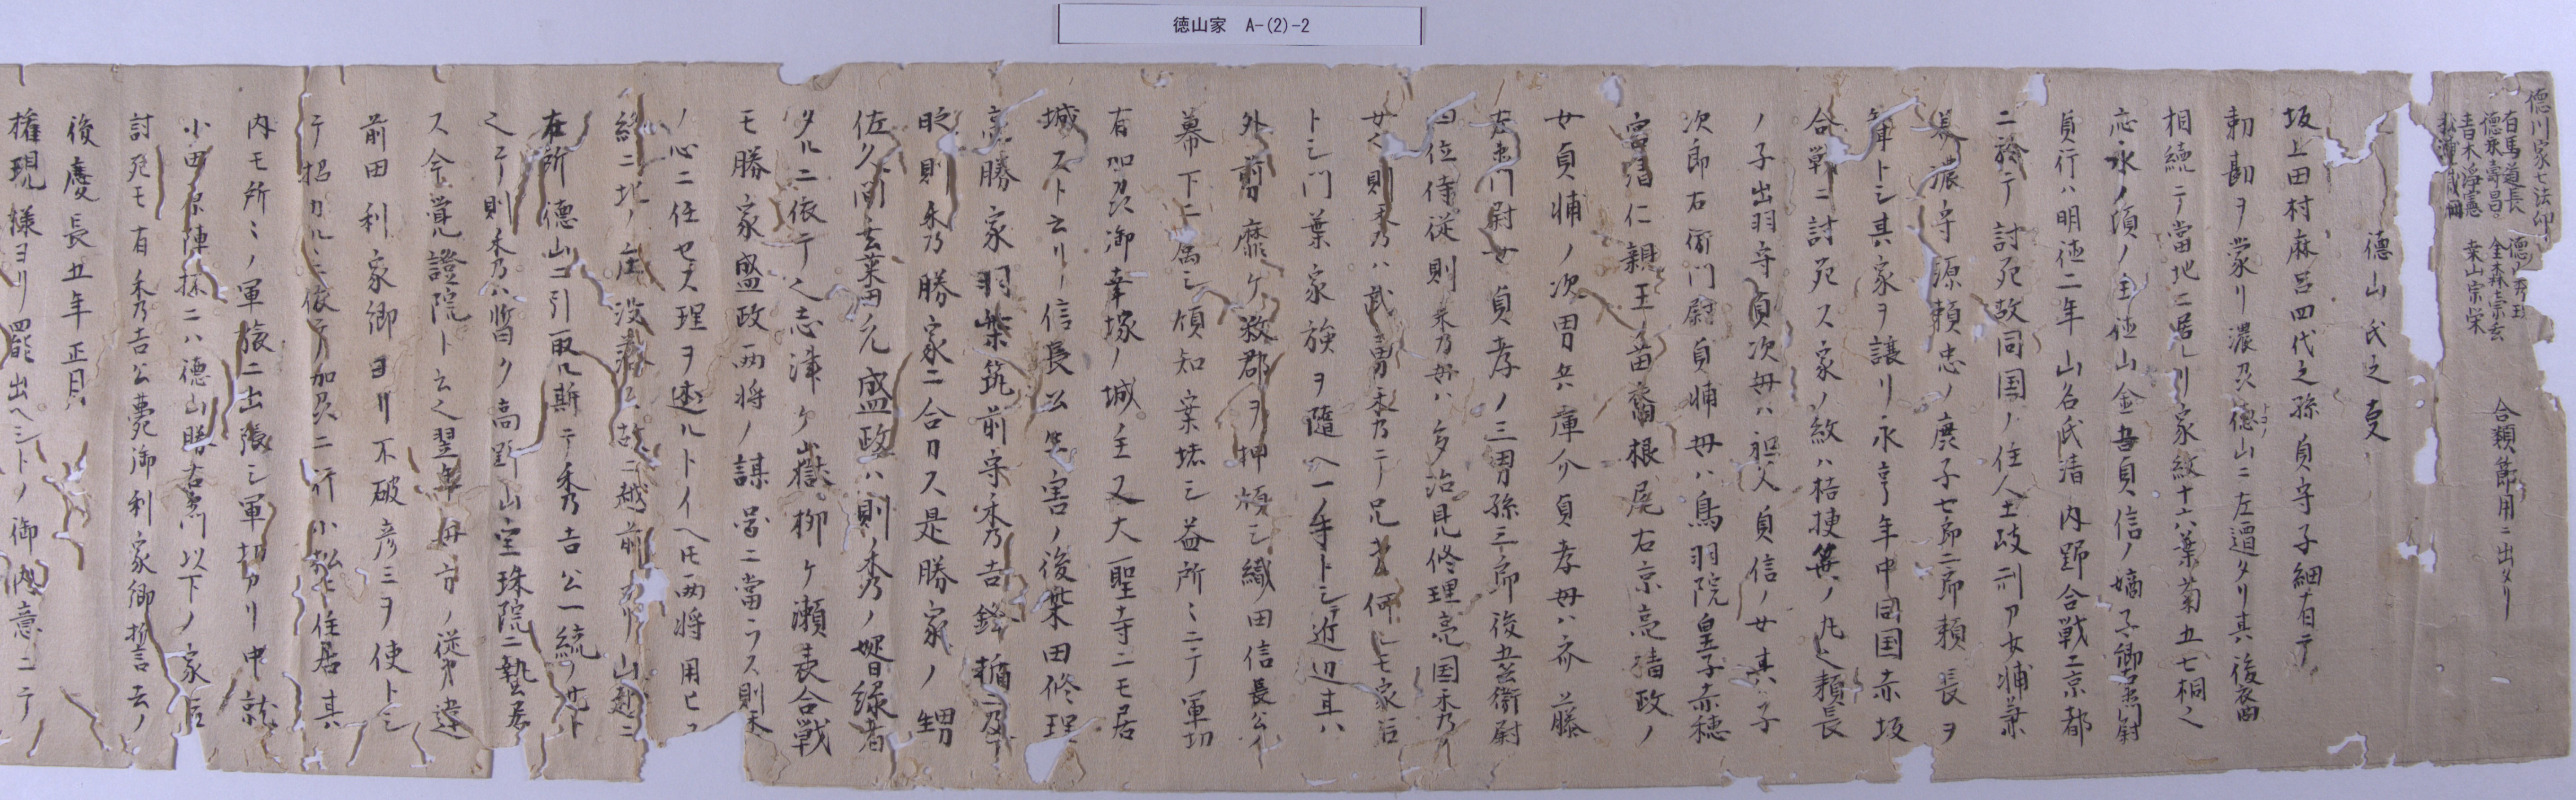 徳山家 A-(2)-2
徳川家七法印
有馬道長 徳山秀現
徳永壽昌 金森宗玄
青木浄憲 桑山宗栄
合類節用ニ出タリ
徳山氏之事
坂上田村麻呂四代之孫貞守子細有テ
勅勘ヲ蒙リ濃刕徳山ニ左遷タリ其後
相續テ當地ニ居レリ家紋十六葉菊五七桐之
応永ノ頃ノ主徳山金吾貞信ノ嫡子
貞行ハ明徳二年山名氏清内野合戦ニ京都
ニ於テ討死故同国ノ住人土岐刑ア少輔兼
美濃守源頼忠ノ庶子七郎二郎頼長ヲ
聟トシ其家ヲ譲リ永享年中同国赤坂
合戦ニ討死ス家ノ紋ハ桔梗ノ丸之頼長
ノ子出羽守貞次母ハ祖父貞信ノ女其子
次郎右衛門尉貞輔母ハ鳥羽院皇子赤穂
宮清仁親王ノ苗裔根尾右京亮清政ノ
女貞輔ノ次男兵庫介貞孝母ハ斎藤
女貞孝ノ三男孫三郎後五兵衛尉
四位侍従則秀乃母ハ多治見修理亮国秀乃
女之則秀乃ハ武勇秀乃ニテ兄弟何レモ家臣
トシ門葉家族ヲ随へ一手トシテ近辺其ハ
外靡ケ数郡ヲ押領シ織田信長公ノ
幕下ニ属シ領知案堵シ益所ミニテ軍功
有加刕御幸塚ノ城主又大聖寺ニモ居
城スト云リ信長公生害ノ後柴田修理
亮勝家羽柴筑前守秀吉鉾楯ニ及フ
則秀乃勝家ニ合力ス是勝家ノ甥
佐久間玄蕃允盛政ハ則秀乃ノ婿縁者
タルニ依テ之志津ケ嶽柳ケ瀬表合戦
モ勝家盛政両将ノ謀畧ニ當ラス則秀
ノ心ニ任セス理ヲ述ルトイヘ𪜈両将用ヒス
終ニ北ノ庄没落ス故ニ越前ヨリ山越ニ
在所徳山ニ引取ル斯テ秀吉公一統ノ世ト
之テ則秀乃ハ暫ク高野山宝珠院ニ蟄居
ス今覚證院ト云之翌年母方ノ従弟違
前田利家卿ヨリ不破彦三ヲ使トシ
テ招カルヽニ依テ加刕ニ行小松ニ住居其
内モ所ミノ軍旅ニ出張シ軍功アリ中就
小田原陣抔ニハ徳山勝右衛門以下ノ家臣
討死モ有秀乃吉公薨御利家卿逝去ノ
後慶長五年正月
権現様ヨリ罷出ヘシトノ御内意ニテ